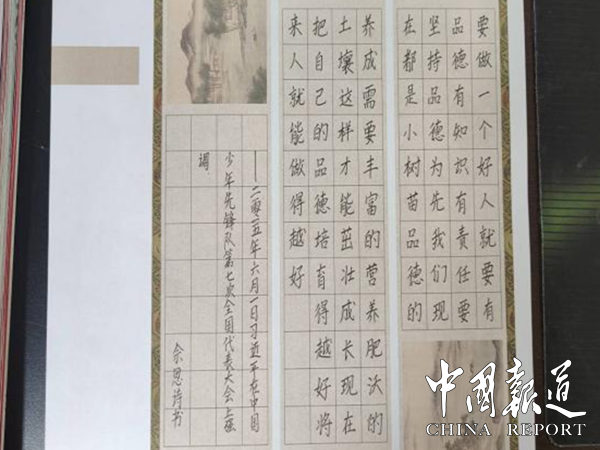 要做一个好人就要有
品德有知识有责任要
坚持品德为先我们现
在都是小树苗品德的
养成需要丰富的营养肥沃的
土壤这样才能茁壮成长现在
把自己的品德培育得越好将
来人就能做得越好
——二零一五年六月一日习近平在中国
少年先锋队第七次全国代表大会上强
调
诗书
中國報道
CHINA REPORT